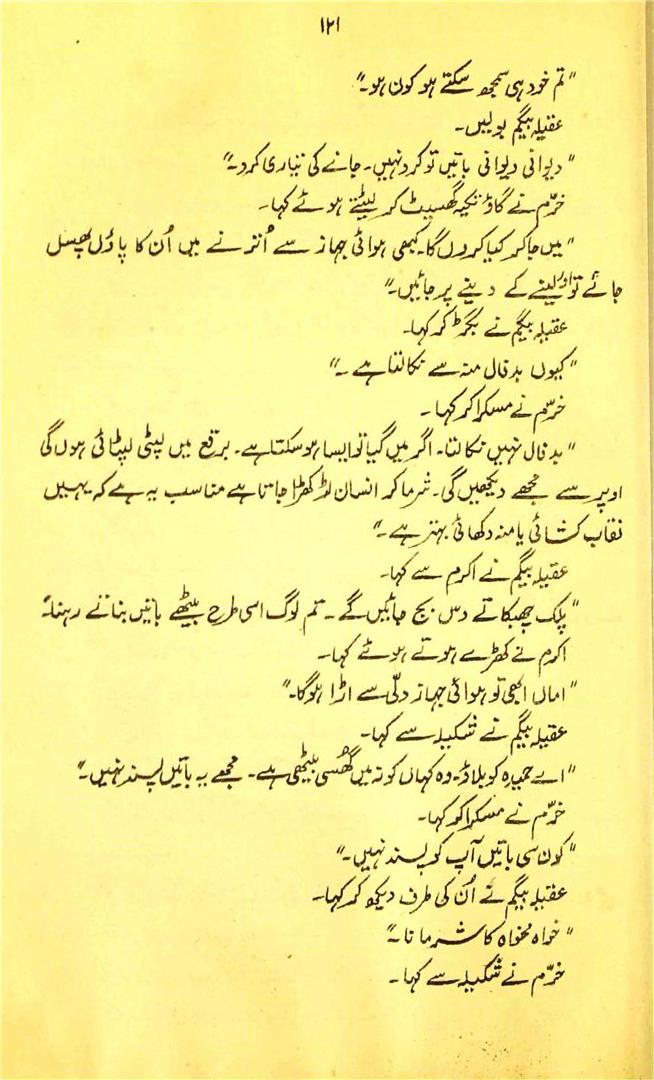 ۱۲۱
"تم خود ہی سمجھ سکتے ہو کون ہو۔"
عقیلہ بیگم بولیں۔
"دیوانی دیوانی باتیں تو کرو نہیں۔ جانے کی تیاری کرو۔"
خرّم نے گاؤ تکیہ گھسیٹ کر لیٹتے ہوئے کہا۔
"میں جا کر کیا کروں گا۔ کبھی ہوائی جہاز سے اُترنے میں اُن کا پاؤں پھسل
جائے تو اور لینے کے دینے پر جائیں۔"
عقیلہ بیگم نے بگڑ کر کہا۔
"کیوں بدفال منہ سے نکالتا ہے ۔"
خرّم نے مسکرا کر کہا۔
"بدفال نہیں نکالتا۔ اگر میں گیا تو ایسا ہو سکتا ہے۔ برقع میں لپٹی لپٹائی ہوں گی
اوپر سے مجھے دیکھیں گی۔ شرما کر انسان لڑکھڑا جاتا ہے مناسب یہ ہے کہ یہیں
نقاب کشائی یا منہ دکھائی بہتر ہے ۔"
عقیلہ بیگم نے اکرم سے کہا۔
"پلک جھپکاتے دس بج جائیں گے ۔ تم لوگ اسی طرح بیٹھے باتیں بناتے رہنا۔"
اکرم نے کھڑے ہوتے ہوئے کہا۔
"اماں ابھی تو ہوائی جہاز دلّی سے اڑا ہوگا۔"
عقیلہ بیگم نے شکیلہ سے کہا۔
"اے حمیدہ کو بلاؤ۔ وہ کہاں کونہ میں گھُسی بیٹھی ہے۔ مجھے یہ باتیں پسند نہیں۔"
خرّم نے مسکرا کر کہا۔
"کون سی باتیں آپ کو پسند نہیں۔"
عقیلہ بیگم نے اُن کی طرف دیکھ کر کہا۔
"خواہ مخواہ کا شرمانا۔"
خرّم نے شکیلہ سے کہا۔